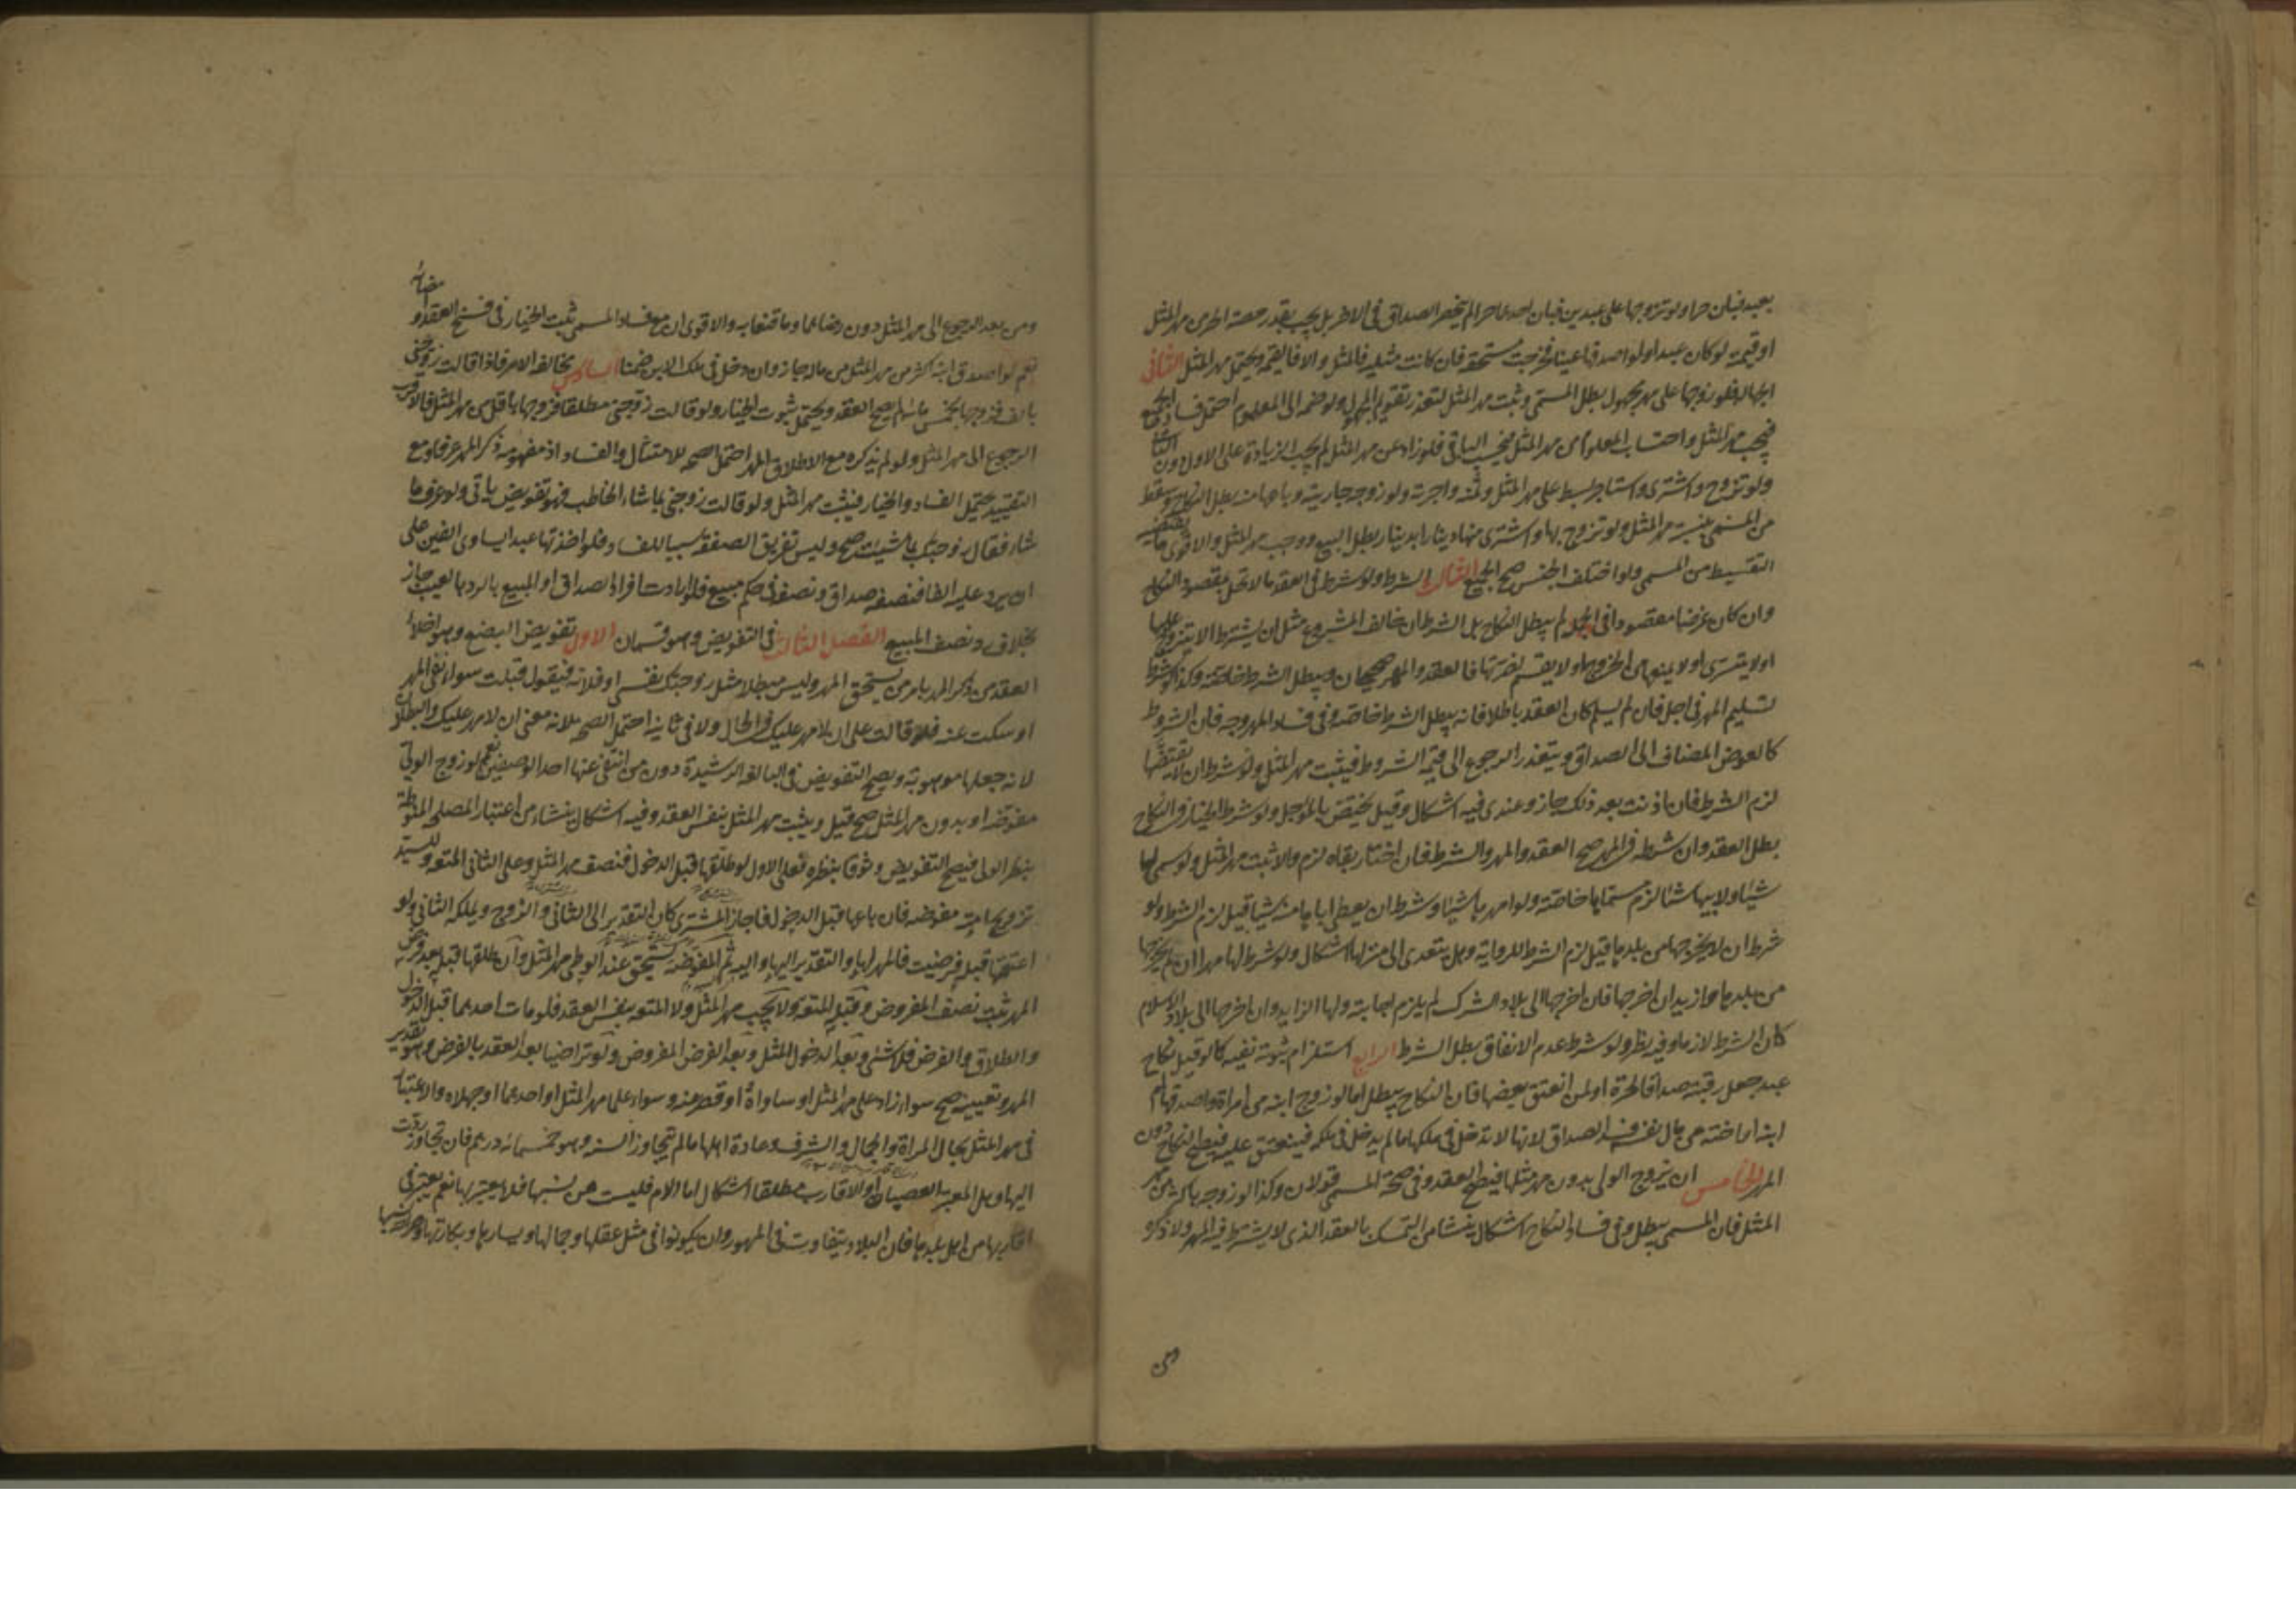 بعبد فبان حرا ولو تزوجها على عبدين فبان احدهما حرا لم ينحصر الصداق في الاخر بل يجب بقدر حصة الحر من مهر المثل
او قيمته لو كان عبدا ولو اصدقها عينا فخرجت مستحقة فان كانت مثلية فالمثل والا فالقيمة ويحتمل مهر المثل الثاني
الجهالة فلو تزوجها على مهر مجهول بطل المسمى وثبت مهر المثل لتعذر تقويم المجهول ولو ضمه الى المعلوم احتمل فساد الجميع
فيجب مهر المثل واحتساب المعلوم من مهر المثل فيجب الباقي فلو زاد عن مهر المثل لم يجب الزيادة على الاول دون الثاني
ولو تزوج واشترى واستاجر بسط على مهر المثل وثمنه واجرته ولو زوجه جاريته وباعها منه بطل النكاح وسقط
من المسمى بنسبة مهر المثل ولو تزوج بها واشترى منها دينارا بدينار بطل البيع ووجب مهر المثل والاقوى ما يقتضيه
التقسيط من المسمى ولو اختلف الجنس صح الجميع الثالث الشرط ولو شرط في العقد ما لا تخل بمقصود النكاح
وان كان غرضا مقصودا في الجملة لم يبطل النكاح بل الشرط ان خالف المشروع مثل ان يشترط الا يتزوج عليها
او لا يتسرى او لا يمنعها من الخروج او لا يقسم لضرتها فالعقد والمهر صحيحان ويبطل الشرط خاصة وكذا لو شرط
تسليم المهر في اجل فان لم يسلم كان العقد باطلا فانه يبطل الشرط خاصة وفي فساد المهر وجه فان الشرط
كالعوض المضاف الى الصداق ويتعذر الرجوع الى قيمة الشروط فيثبت مهر المثل ولو شرط ان لا يقتضها
لزم الشرط فان اذنت بعد ذلك جاز وعندي فيه اشكال وقيل يختص بالمؤجل ولو شرط الخيار في النكاح
بطل العقد وان شرطه في المهر صح العقد والمهر والشرط فان اختار بقاه لزم والا ثبت مهر المثل ولو سمى لها
شيئا ولابيها شيئا لزم مسماها خاصة ولو امهرها شيئا وشرط ان يعطي اباها منه شيئا قيل لزم الشرط ولو
شرط ان لا يخرجها من بلدها قيل لزم الشرط للرواية وهل يتعدى الى منزلها اشكال ولو شرط لها مهرا ان لم يخرجها
من بلدها وازيد ان اخرجها فان اخرجها الى بلاد الشرك لم يلزم اجابته ولها الزايد وان اخرجها الى بلاد الاسلام
كان الشرط لازما وفيه نظر ولو شرط عدم الانفاق بطل الشرط الرابع استلزام ثبوته نفيه كما لو قبل نكاح
عبد جعل رقبته صداقا لحرة او لمن انعتق بعضها فان النكاح يبطل اما لو زوج ابنه من امراة واصدقها ام
ابنه اما اخته من مال نفسه فسد الصداق لانها لا تدخل في ملكها ما لم يدخل في ملكه فينعتق عليه فيصح النكاح دون
المهر الخامس ان يزوج الولي بدون مهر مثلها فيصح العقد وفي صحة المسمى قولان وكذا لو زوجه باكثر من مهر
المثل فان المسمى يبطل وفي فساد النكاح اشكال ينشا من التمسك بالعقد الذي لا يشترط فيه المهر ولا ذكره
ومن
ومن بعد الرجوع الى مهر المثل دون رضاهما وما قنعا به والاقوى ان مع فساد المسمى ثبت الخيار في فسخ العقد وامضائه
نعم لو اصدق ابنه اكثر من مهر المثل من ماله جاز وان دخل في ملك الابن ضمنا السادس مخالفة الامر فاذا قالت زوجني
بالف فزوجها بخمس مائة لم يصح العقد ويحتمل ثبوت الخيار ولو قالت زوجني مطلقا فزوجها باقل من مهر المثل فالاقرب
الرجوع الى مهر المثل ولو لم يذكره مع الاطلاق المهر احتمل الصحة للامتثال والفساد اذ مفهومه ذكر المهر عرفا ومع
التقييد يحتمل الفساد والخيار فيثبت مهر المثل ولو قالت زوجني بما شاء الخاطب فهو تفويض ياتي ولو عرف ما
شاء فقال زوجتك بما شئت صح وليس تفريق الصفقة سببا للفساد فلو اخذتها عبدا يساوي الفين على
ان يرد عليه الفا فنصفه صداق ونصفه في حكم مبيع فلو ارادت افراد الصداق او المبيع بالرد بالعيب جاز
بخلاف ونصف المبيع الفصل الثالث في التفويض وهو قسمان الاول تفويض البضع وهو اخلاء
العقد من ذكر المهر بامر من يستحق المهر وليس مبطلا مثل زوجتك نفسي او فلانة فيقول قبلت سواء نفى المهر
او سكت عنه فلو قالت على ان لا مهر عليك في الحال ولا في ثانيه احتمل الصحة لانه معنى ان لا مهر عليك والبطلان
لانه جعلها موهوبة ويصح التفويض في البالغة الرشيدة دون من انتفى عنها احد الوصفين نعم لو زوج الولي
مفوضة او بدون مهر المثل صح قيل ويثبت مهر المثل بنفس العقد وفيه اشكال ينشاء من اعتبار المصلحة المنوطة
بنظر الولي فيصح التفويض وثوقا بنظره فعلى الاول لو طلقها قبل الدخول فنصف مهر المثل وعلى الثاني المتعة وللسيد
تزويج امته مفوضة فان باعها قبل الدخول فاجاز المشتري كان التقدير الى الثاني والزوج ويملكه الثاني ولو
اعتقها قبل فرضيت فالمهر لها والتقدير اليها واليه ثم المفوضة تستحق عند الوطي مهر المثل وان طلقها قبله بعد فرض
المهر ثبت نصف المفروض وقبله المتعة ولا يجب مهر المثل ولا المتعة بنفس العقد فلو مات احدهما قبل الدخول
والطلاق والفرض فلا شئ وبعد الدخول المثل وبعد الفرض المفروض ولو تراضيا بعد العقد بالفرض وهو تقدير
المهر وتعيينه صح سواء زاد على مهر المثل او ساواه او قصر عنه وسواء علما مهر المثل او احدهما او جهلاه والاعتبار
في مهر المثل بحال المراة والجمال والشرف وعادة اهلها ما لم يتجاوز السنة وهو خمسمائة درهم فان تجاوز ردت
اليها وهل المعتبر العصبات او الاقارب مطلقا اشكال اما الام فليست من نسبها فلا يعتبر بها نعم يعتبر في
اقاربها من اهل بلدها فان البلاد يتفاوت في المهور وان يكونوا في مثل عقلها وجمالها ويسارها وبكارتها وصراحة نسبها